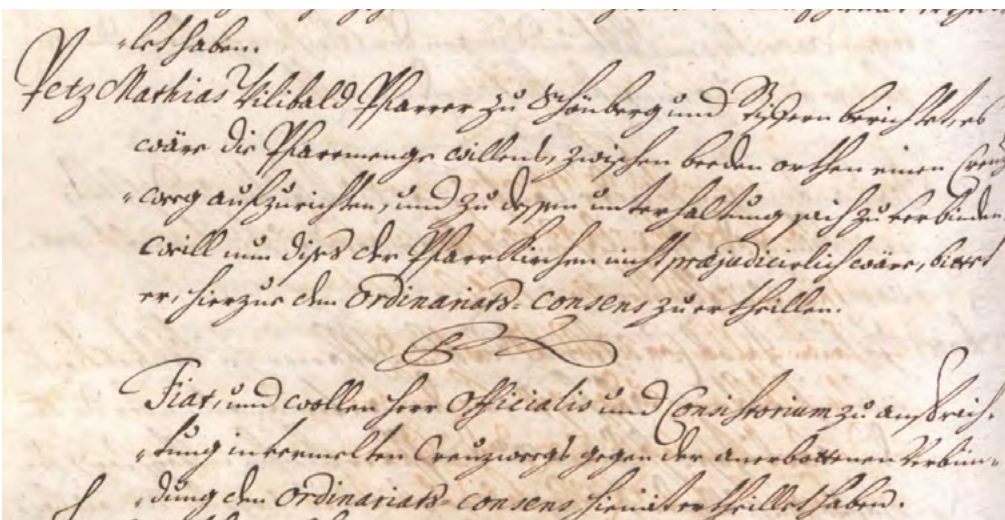 -let haben.
Petz Mathias Vilibald Pfarrer zu Schönberg und berichtet, es
wäre die Pfarrmenge willens, zwischen beeden orthen einen Creuz
-weeg aufzurichten, und zu dessen unterhaltung sich zu verbinden
weill nun dises der Pfarrkirchen nicht præjudicirlich wäre, bittet
er, hierzue den Ordinariats-Consens zu ertheillen.
Fiat, und wollen Herr Officialis und Consistorium zu aufrich-
-tung in vermelten Creuzweegs gegen der anerbottenen verbün-
-dung den Ordinariats-Consens hiemit ertheillet haben.